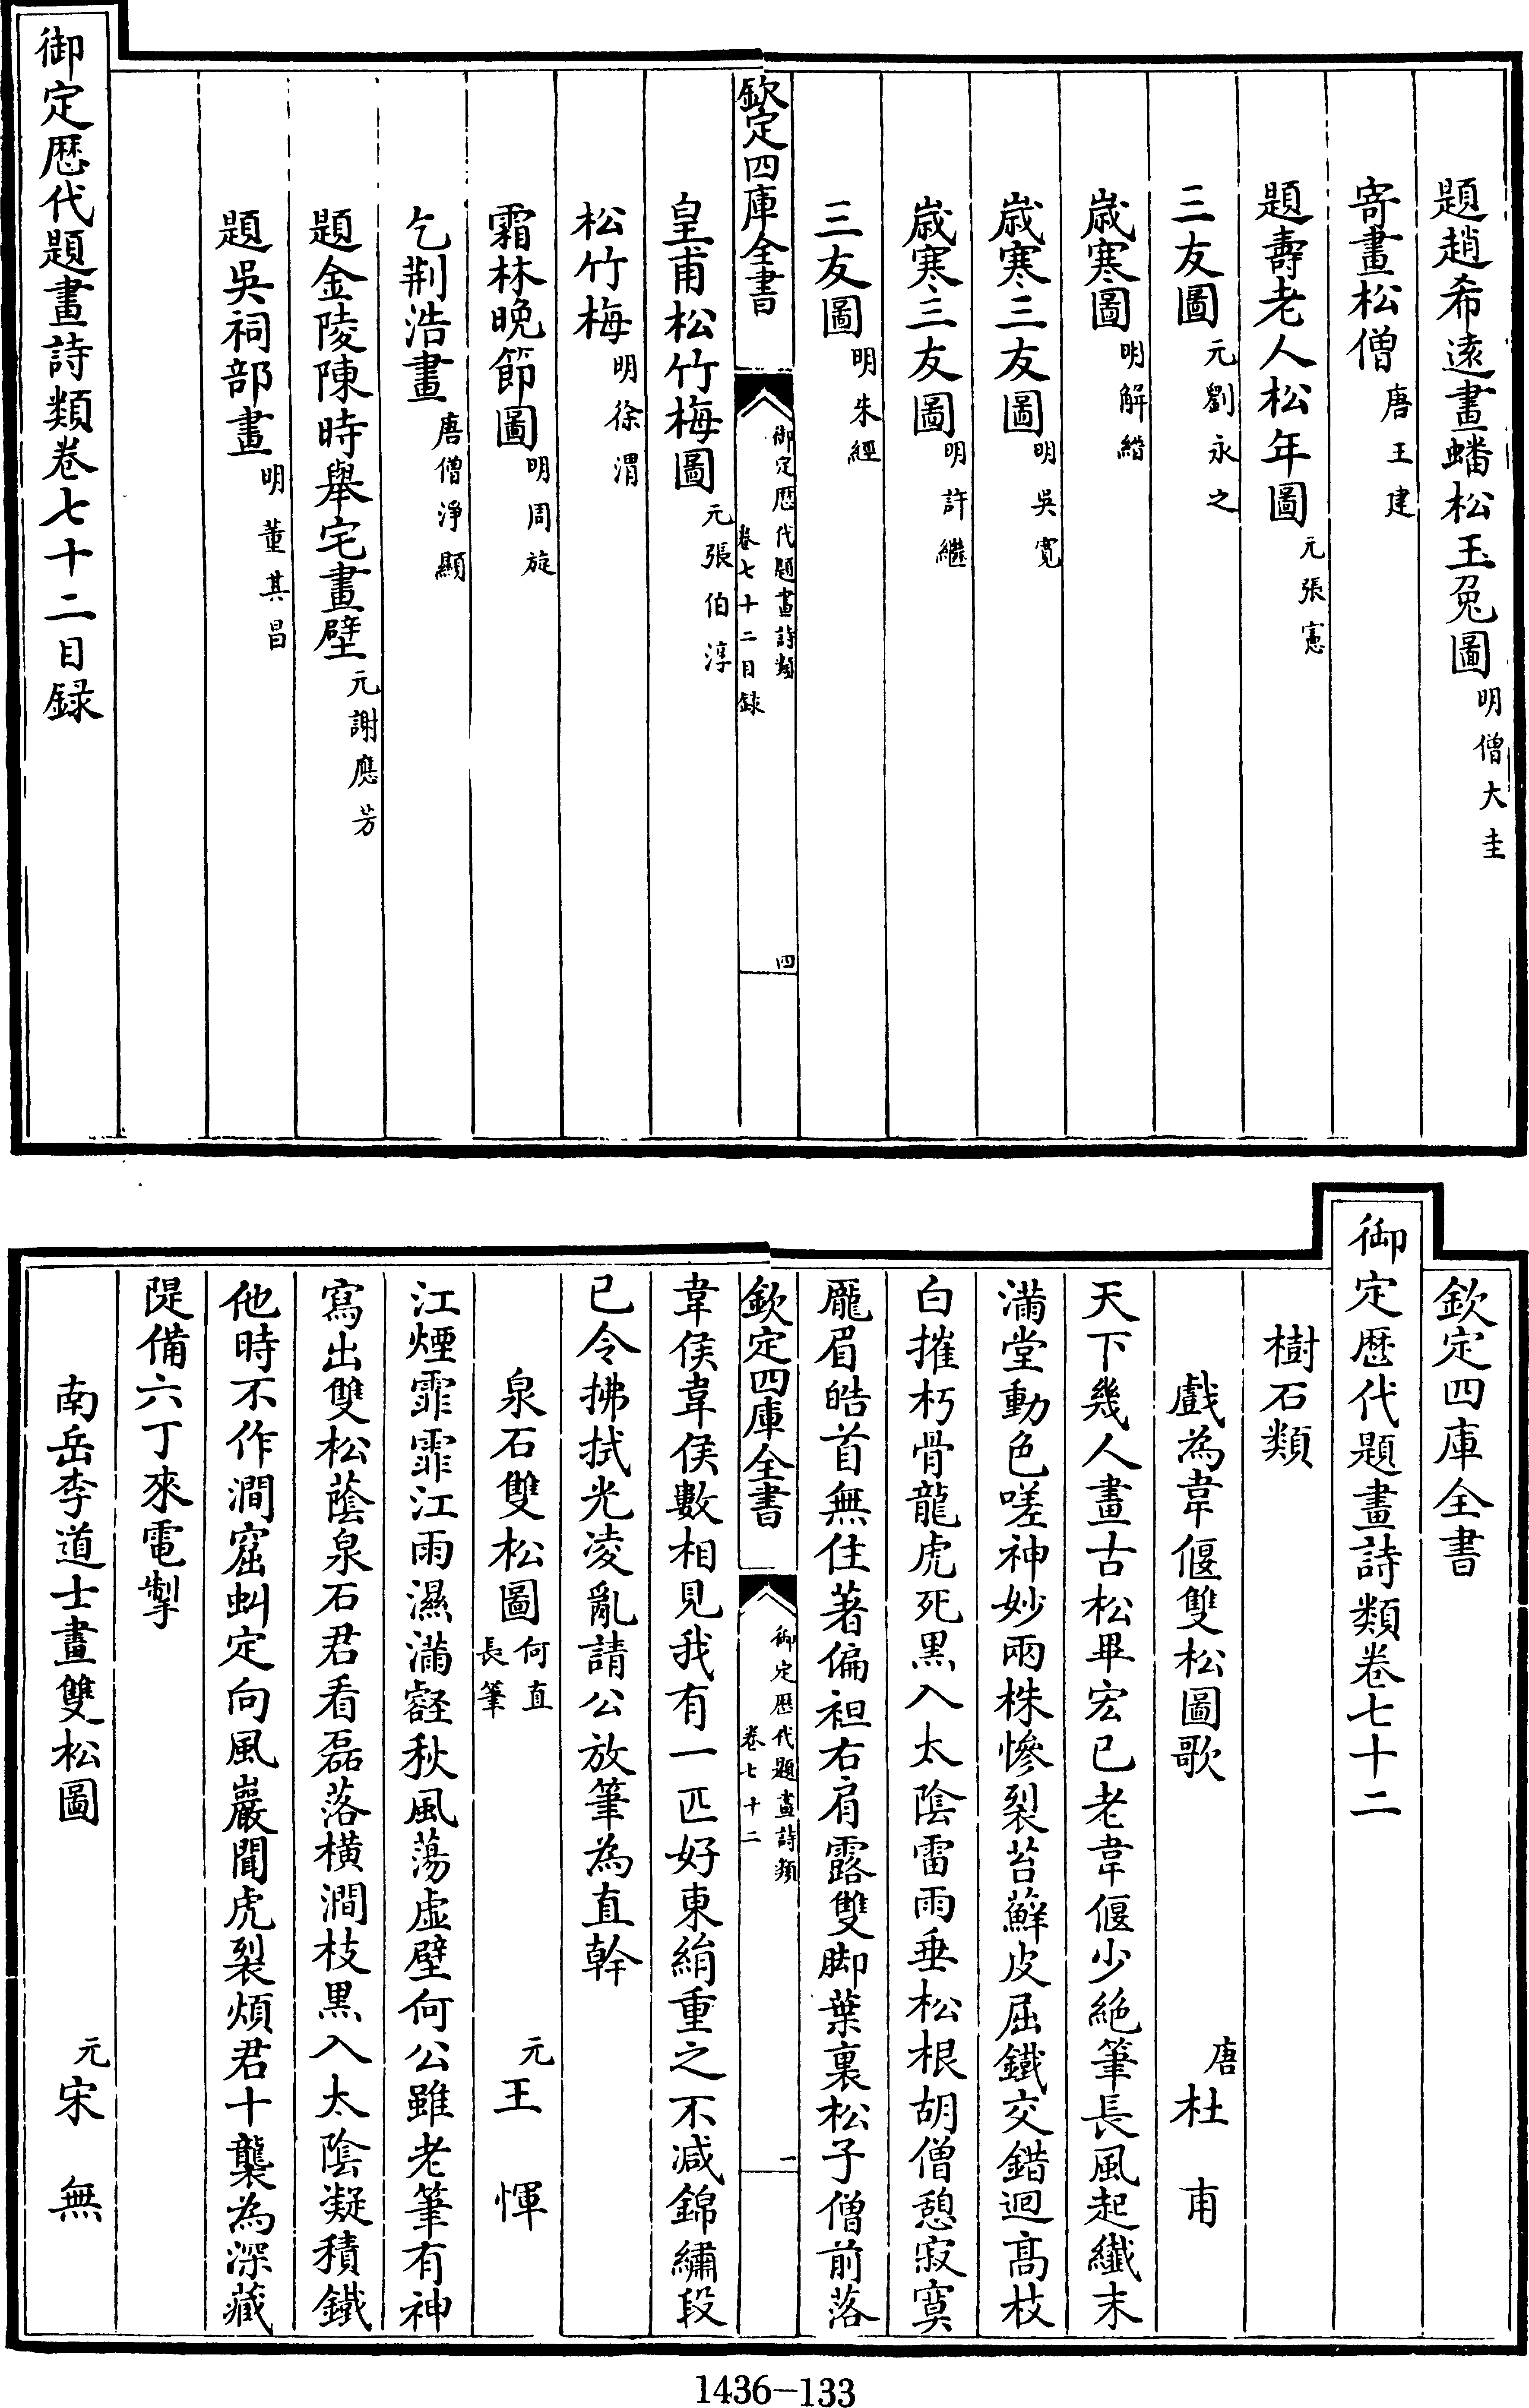 題趙希遠畫蟠松玉兔圖明僧大圭
寄畫松僧唐王建
題壽老人松年圖元張憲
三友圖元劉永之
歳寒圖明解縉
歳寒三友圖明吳寛
歳寒三友圖明許繼
三友圖明朱經
欽定四庫全書
御定歴代題畫詩類
卷七十二目録
四
皇甫松竹梅圖元張伯淳
松竹梅明徐渭
霜林晚節圖明周旋
乞荆浩畫唐僧淨顯
題金陵陳時舉宅畫壁元謝應芳
題吳祠部畫明董其昌
御定歴代題畫詩類卷七十二目録
欽定四庫全書
御定歴代題畫詩類卷七十二
樹石類
戲為韋偃雙松圖歌 唐杜甫
天下幾人畫古松畢宏已老韋偃少絶筆長風起纖末
滿堂動色嗟神妙兩株慘裂苔蘚皮屈鐵交錯迴髙枝
白摧朽骨龍虎死黑入太陰雷雨垂松根胡僧憩寂寞
厖眉皓首無住著偏袒右肩露雙脚葉裏松子僧前落
欽定四庫全書
御定歴代題畫詩類
卷七十二
一
韋侯韋侯數相見我有一匹好東絹重之不减錦繡段
已令拂拭光凌亂請公放筆為直幹
泉石雙松圖何直長筆 元王惲
江煙霏霏江雨濕滿壑秋風蕩虛壁何公雖老筆有神
寫出雙松蔭泉石君看磊落横澗枝黑入太陰凝積鐵
他時不作澗窟虯定向風巖聞虎裂煩君十襲為深藏
隄備六丁來電掣
南岳李道士畫雙松圖 元宋無
1436—133